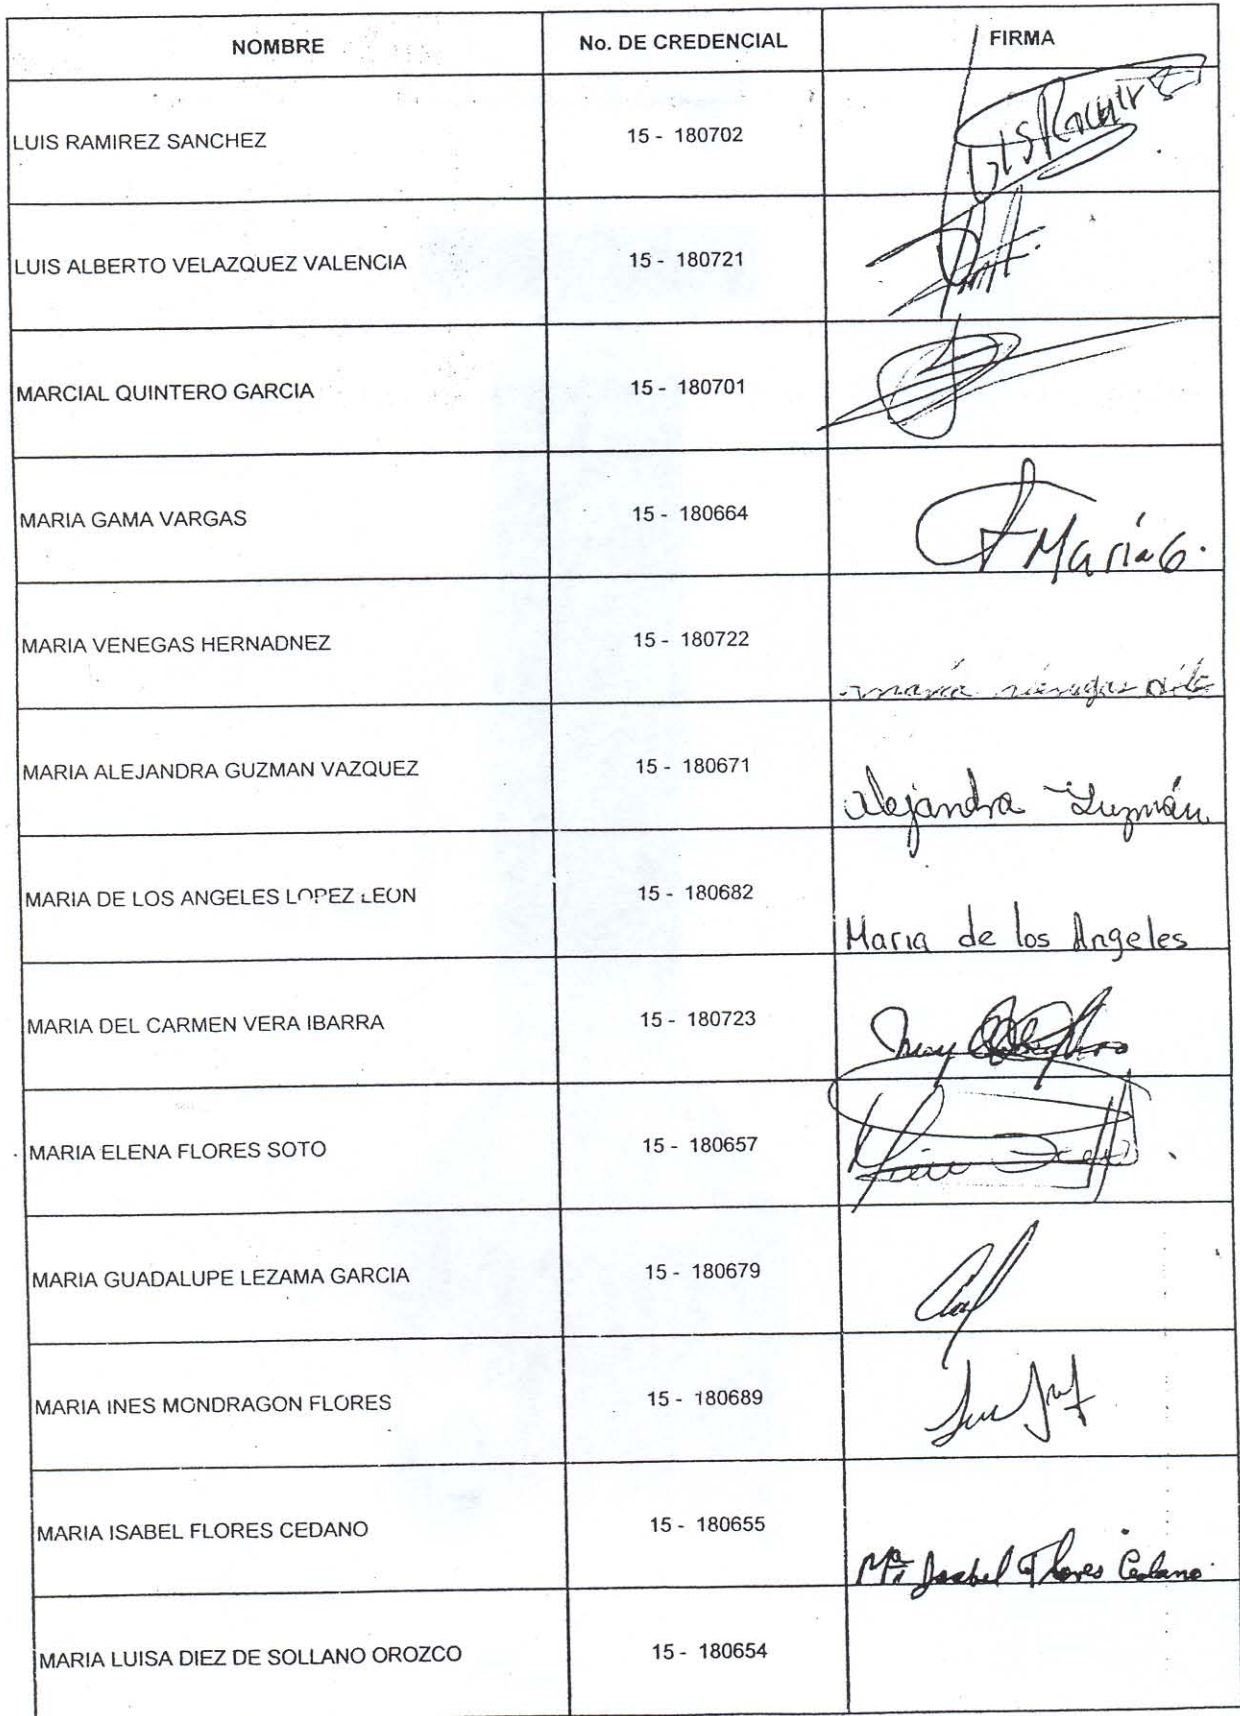 NOMBRE No. DE CREDENCIAL FIRMA
LUIS RAMIREZ SANCHEZ 15 - 180702
LUIS ALBERTO VELAZQUEZ VALENCIA 15 - 180721
MARCIAL QUINTERO GARCIA 15 - 180701
MARIA GAMA VARGAS 15 - 180664 María G.
MARIA VENEGAS HERNADNEZ 15 - 180722
MARIA ALEJANDRA GUZMAN VAZQUEZ 15 - 180671 Alejandra Guzmán
MARIA DE LOS ANGELES LOPEZ LEON 15 - 180682 Maria de los Angeles
MARIA DEL CARMEN VERA IBARRA 15 - 180723
MARIA ELENA FLORES SOTO 15 - 180657
MARIA GUADALUPE LEZAMA GARCIA 15 - 180679
MARIA INES MONDRAGON FLORES 15 - 180689
MARIA ISABEL FLORES CEDANO 15 - 180655 Ma. Isabel Flores Cedano
MARIA LUISA DIEZ DE SOLLANO OROZCO 15 - 180654